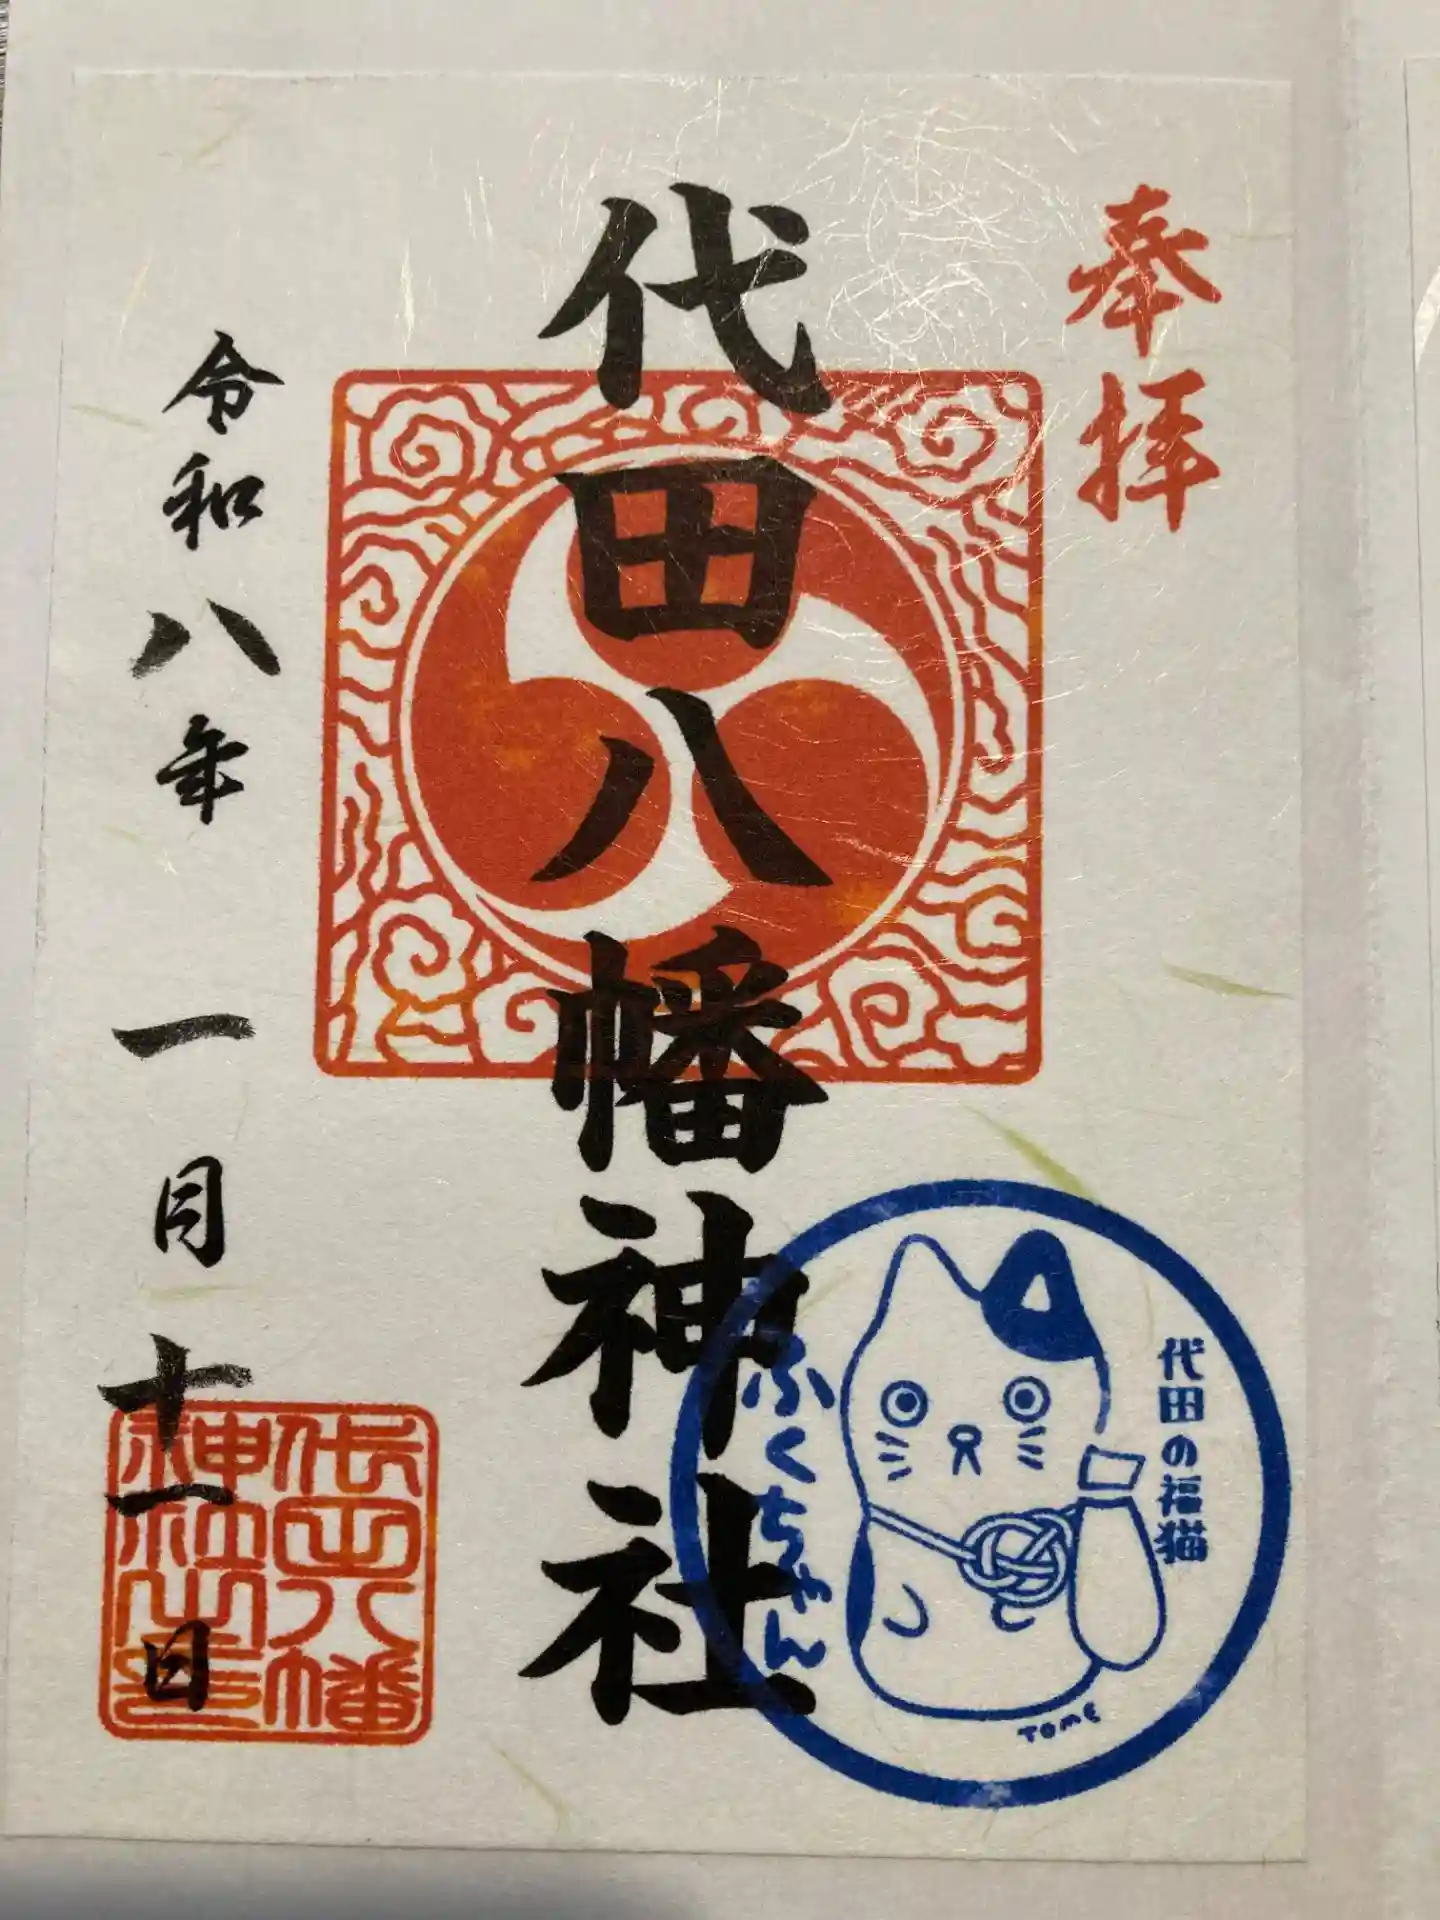 奉拝
代田八幡神社
令和八年一月十一日
代田八幡
神社之印
代田の福猫
ふくちゃん
TOME